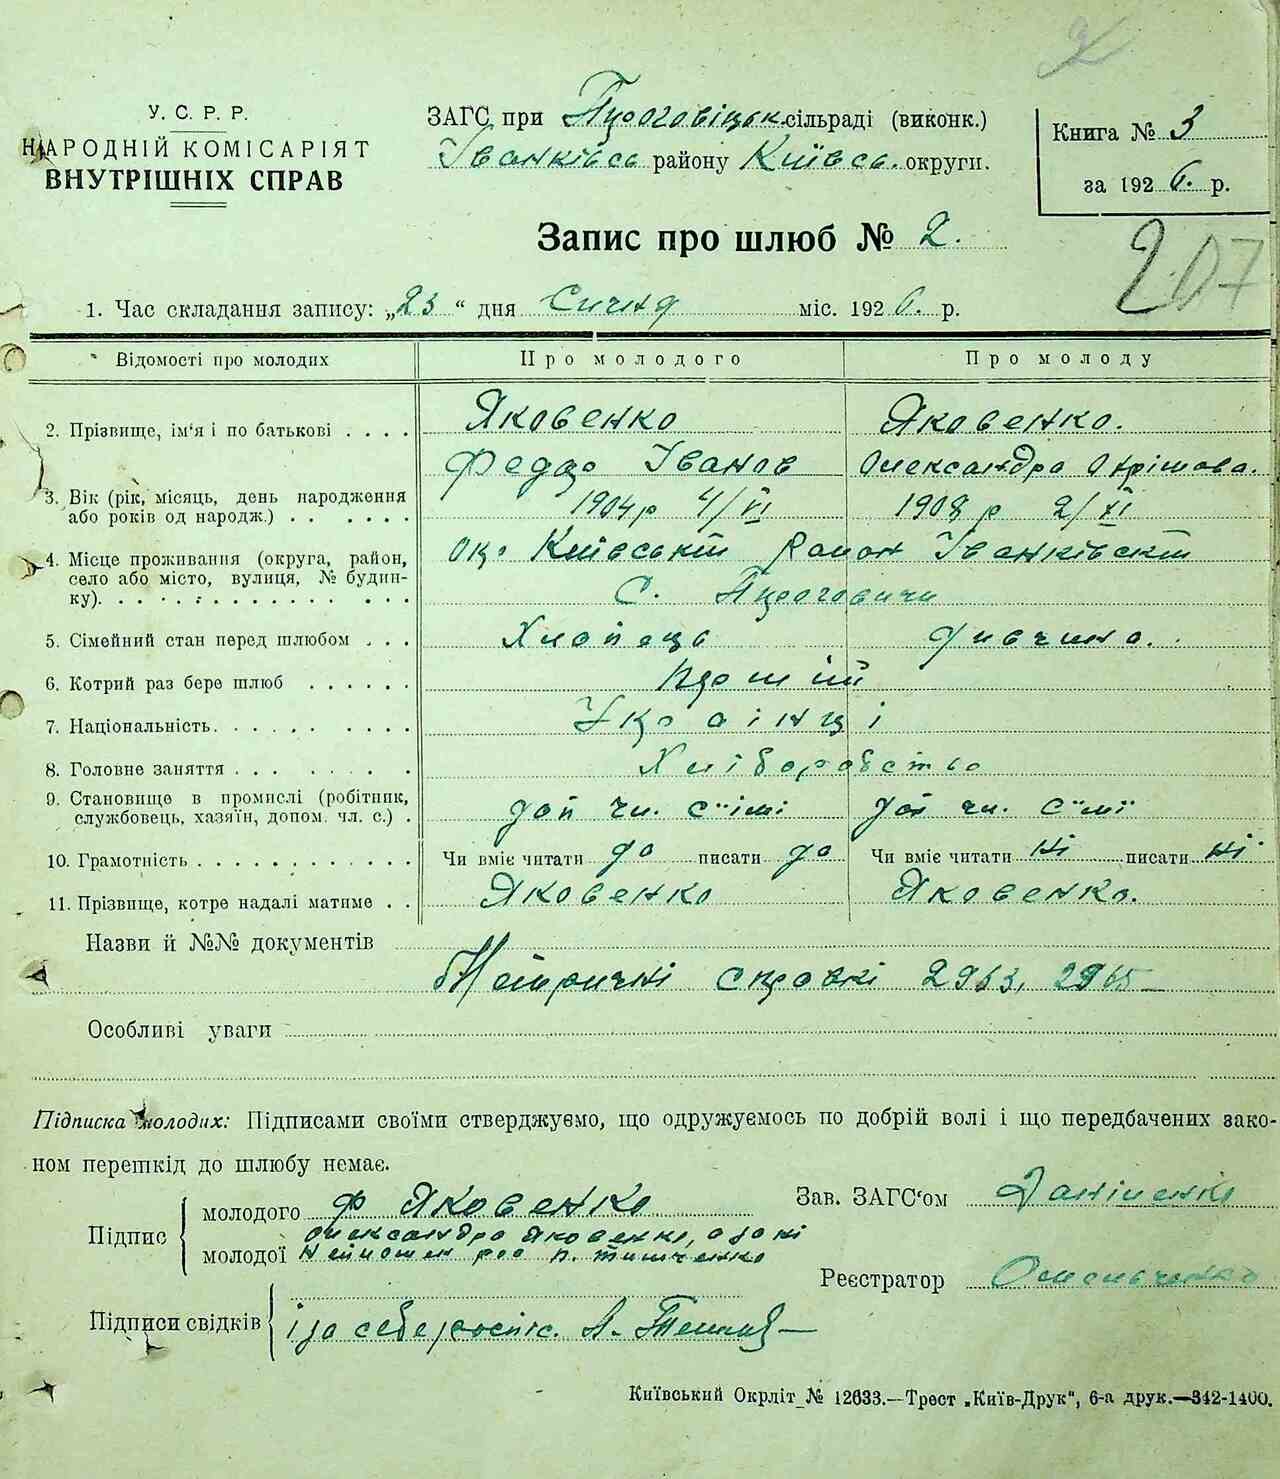 2
У. С. Р. Р.
НАРОДНІЙ КОМІСАРІЯТ
ВНУТРІШНІХ СПРАВ
ЗАГС при Прогоровіцьк. сільраді (виконк.)
Іванківсь району Київсь. округи.
Книга № 3
за 1926. р.
Запис про шлюб № 2.
207
1. Час складання запису: „23“ дня Січня міс. 1926. р.
Відомості про молодих
Про молодого
Про молоду
2. Прізвище, ім‘я і по батькові . . . .
Яковенко
Яковенко.
Федір Іванов
Олександра
3. Вік (рік, місяць, день народження або років од народж.) . . . . . .
1904р 4/VI
1908 р 2/XI
4. Місце проживання (округа, район, село або місто, вулиця, № будинку). . . . . . . . . . . . . . .
окр Київській Район Іванківскій
С.
5. Сімейний стан перед шлюбом . . .
Хлопець
Дивчина.
6. Котрий раз бере шлюб . . . . . .
Перший
7. Національність. . . . . . . . . . .
Українці
8. Головне заняття . . . . . . . . .
Хліборобство
9. Становище в промислі (робітник, службовець, хазяїн, допом. чл. с.) .
Доп чл. сїімї
Доп чл. сїмї
10. Грамотність . . . . . . . . . . . .
Чи вміє читати да писати да
Чи вміє читати ні писати ні
11. Прізвище, котре надалі матиме . .
Яковенко
Яковенко.
Назви й №№ документів
Метричні справкі 2963, 2965
Особливі уваги
Підписка молодих: Підписами своїми стверджуємо, що одружуємось по добрій волі і що передбачених зако-
ном перешкід до шлюбу немає.
Підпис
молодого Ф Яковенко
молодої Олександра Яковенко, а за ні
Зав. ЗАГС‘ом Даніленко
Реєстратор Омельченко
Підписи свідків
і за себе роспис.
Київський Окрліт № 12633.—Трест „Київ-Друк“, 6-а друк.—342-1400.